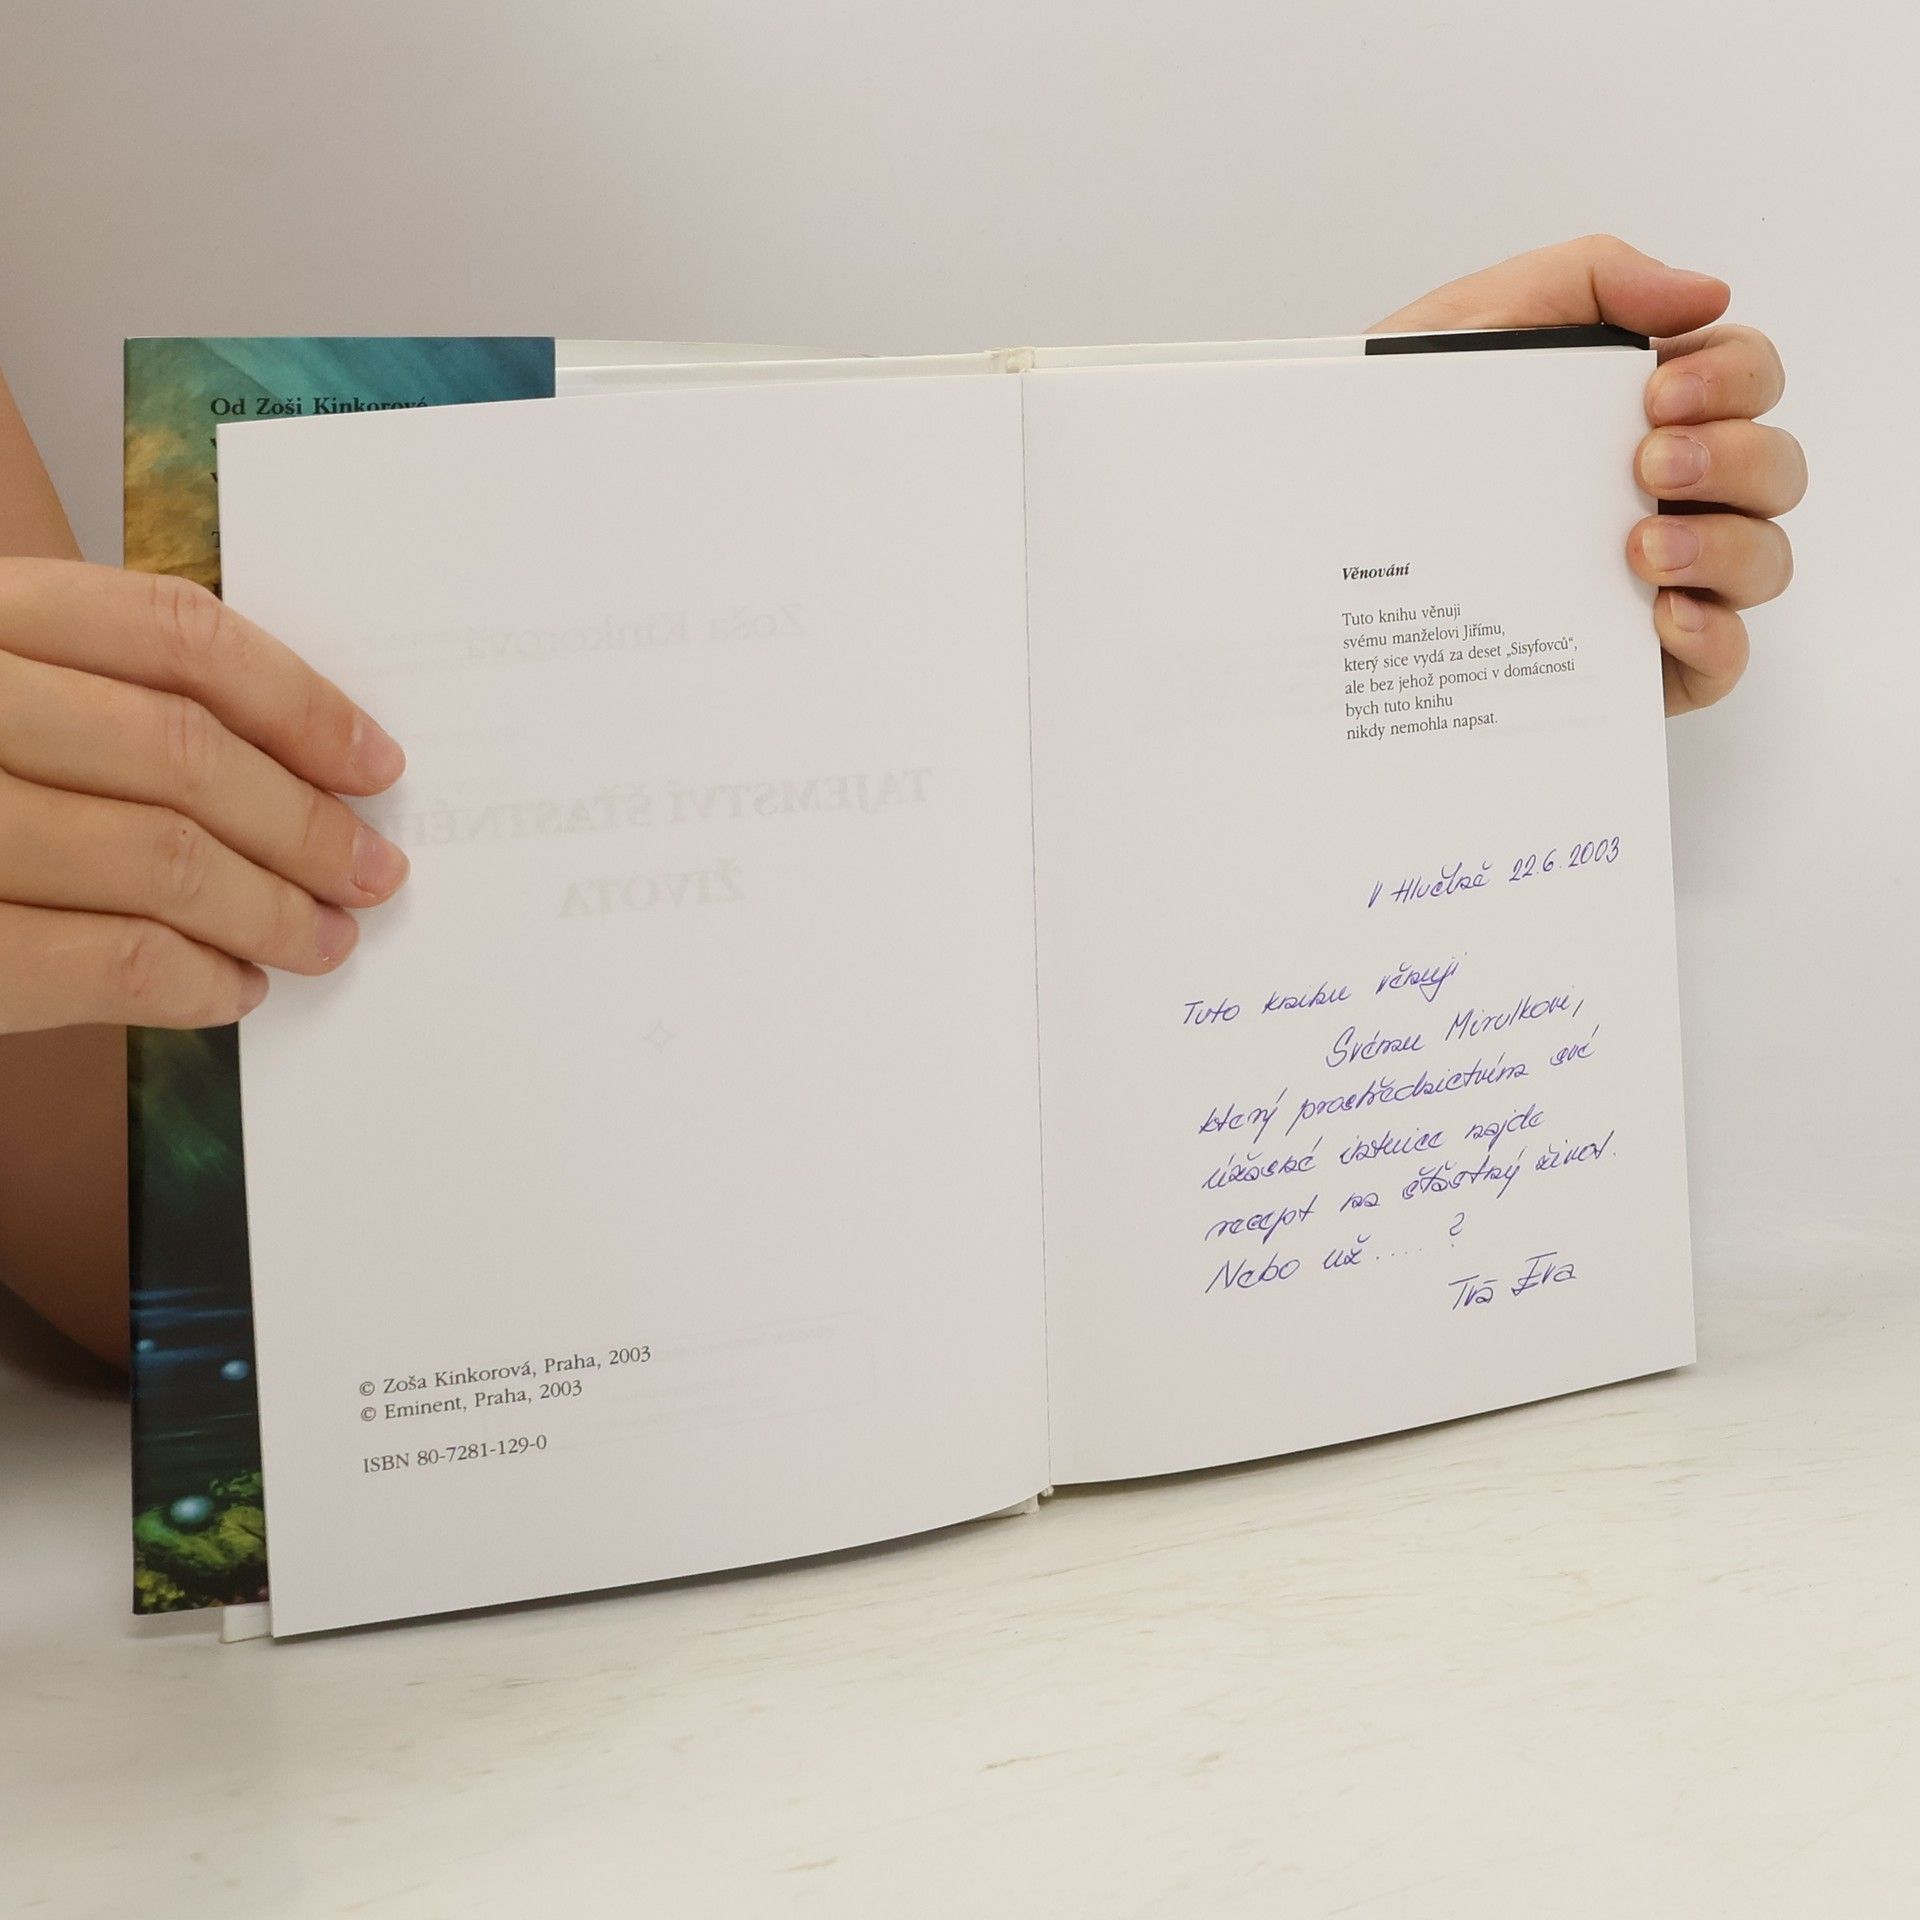 Od Zoši Kinkorové
Zoša Kinkorová
TAJEMSTVÍ ŠŤASTNÉ
ŽIVOTA
© Zoša Kinkorová, Praha, 2003
© Eminent, Praha, 2003
ISBN 80-7281-129-0
Věnování
Tuto knihu věnuji
svému manželovi Jiřímu,
který sice vydá za deset „Sisyfovců“,
ale bez jehož pomoci v domácnosti
bych tuto knihu
nikdy nemohla napsat.
V Hlučíně 22.6.2003
Tuto knihu věnuji
Svému Mirulkovi,
který prostřednictvím své
úžasné intuice najde
recept na šťastný život.
Nebo už..... ?
Tvá Eva